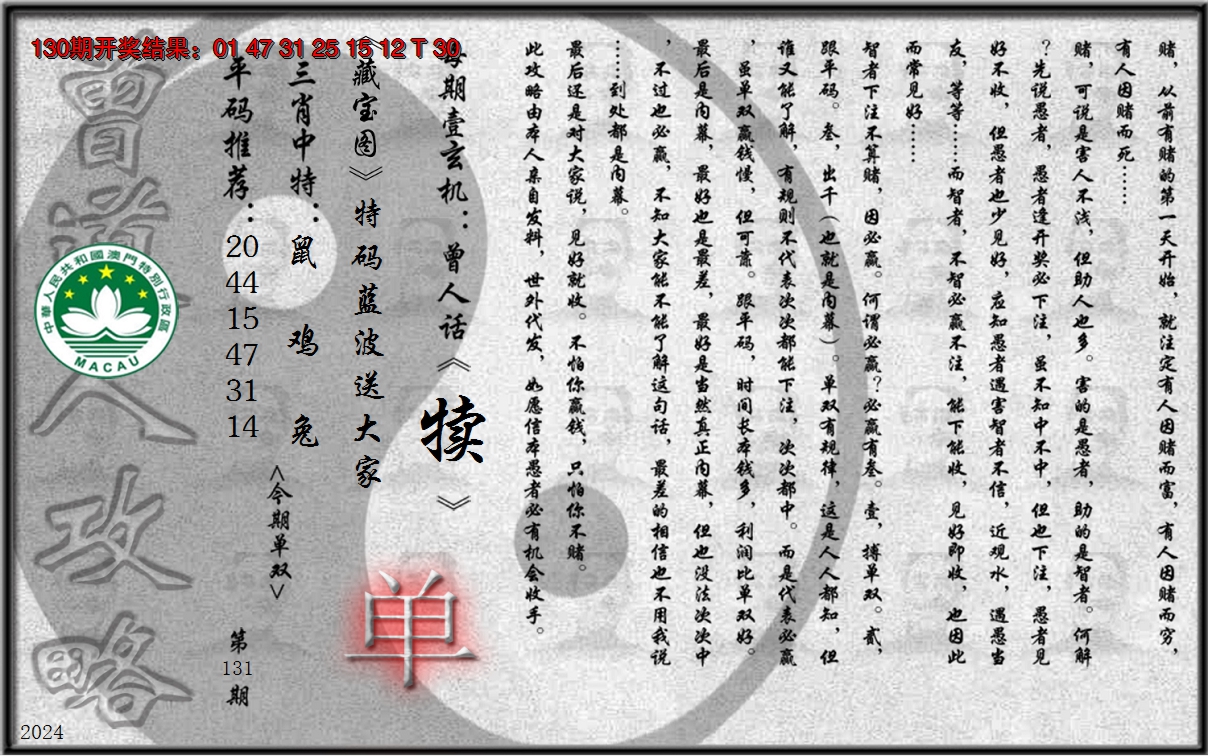 130期开奖结果：01 47 31 25 15 12 T 30
赌，从前有赌的第一天开始，就注定有人因赌而富，有人因赌而穷，
有人因赌而死……
赌，可说是害人不浅，但助人也多。害的是愚者，助的是智者。何解
？先说愚者，愚者逢开奖必下注，虽不知中不中，但也下注，愚者见
好不收，但愚者也少见好，应知愚者遇害智者不信，近观水，遇愚当
友，等等……而智者，不智必赢不注，能下能收，见好即收，也因此
而常见好……
智者下注不算赌，因必赢。何谓必赢？必赢有叁。壹，搏单双。贰，
跟平码。叁，出千（也就是内幕）。单双有规律，这是人人都知，但
谁又能了解，有规则不代表次次都能下注，次次都中。而是代表必赢
，虽单双赢钱慢，但可靠。跟平码，时间长本钱多，利润比单双好。
最后是内幕，最好也是最差，最好是当然真正内幕，但也没法次次中
，不过也必赢，不知大家能不能了解这句话，最差的相信也不用我说
……到处都是内幕。
最后还是对大家说，见好就收。不怕你赢钱，只怕你不赌。
此攻略由本人亲自发料，世外代发，如愿信本愚者必有机会收手。
每期壹玄机：曾人话《犊》
《藏宝图》特码蓝波送大家
单
三肖中特：鼠 鸡 兔
<今期单双>
平码推荐：20 44 15 47 31 14
第131期
曾道人攻略
中華人民共和國澳門特別行政區
MACAU
2024